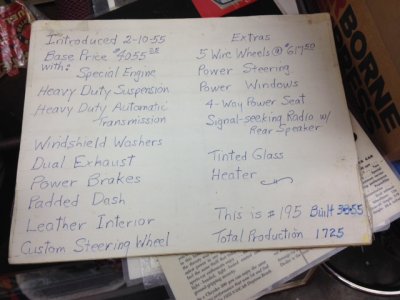 Introduced 2-10-55
Base Price $4055.00
with: Special Engine
Heavy Duty Suspension
Heavy Duty Automatic
Transmission
Windshield Washers
Dual Exhaust
Power Brakes
Padded Dash
Leather Interior
Custom Steering Wheel
Extras
5 Wire Wheels @ $617.50
Power Steering
Power Windows
4-Way Power Seat
Signal-seeking Radio w/
Rear Speaker
Tinted Glass
Heater
This is # 195 Built
Total Production 1725
BORNE